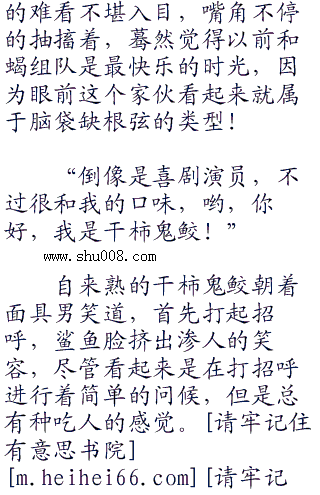 的难看不堪入目，嘴角不停
的抽搐着，蓦然觉得以前和
蝎组队是最快乐的时光，因
为眼前这个家伙看起来就属
于脑袋缺根弦的类型！
“倒像是喜剧演员，不
过很和我的口味，哟，你
好，我是干柿鬼鲛！”
www.shu008.com
自来熟的干柿鬼鲛朝着
面具男笑道，首先打起招
呼，鲨鱼脸挤出渗人的笑
容，尽管看起来是在打招呼
进行着简单的问候，但是总
有种吃人的感觉。[请牢记住
有意思书院]
[m.heihei66.com][请牢记